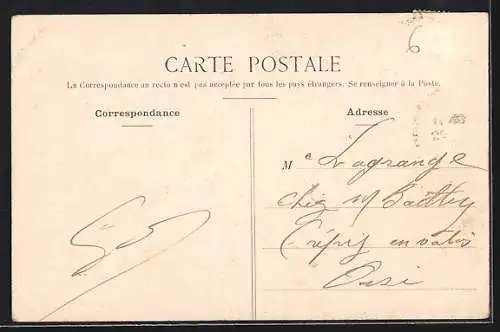 6
CARTE POSTALE
La Correspondance au recto n'est pas acceptée par tous les pays étrangers. Se renseigner à la Poste.
Correspondance
Adresse
M e Lagrange
chez M
Crépy en valois
Oise